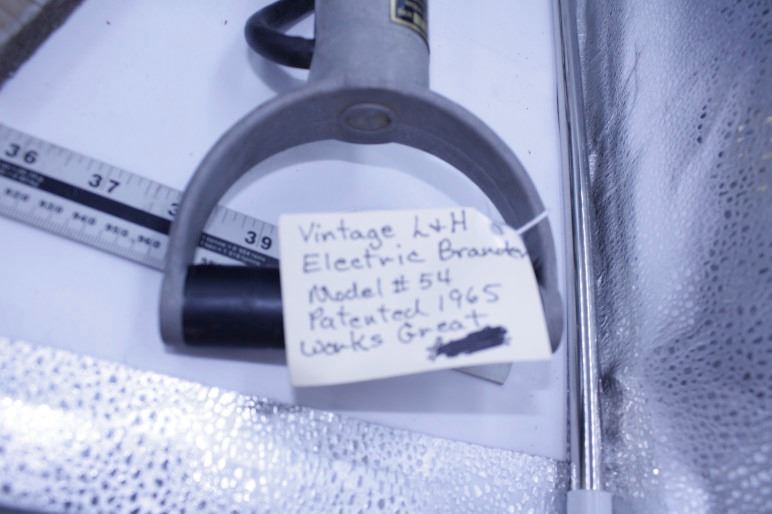 36
37
39
920 930 940 950 960
Vintage L+H
Electric Brander
Model # 54
Patented 1965
Works Great